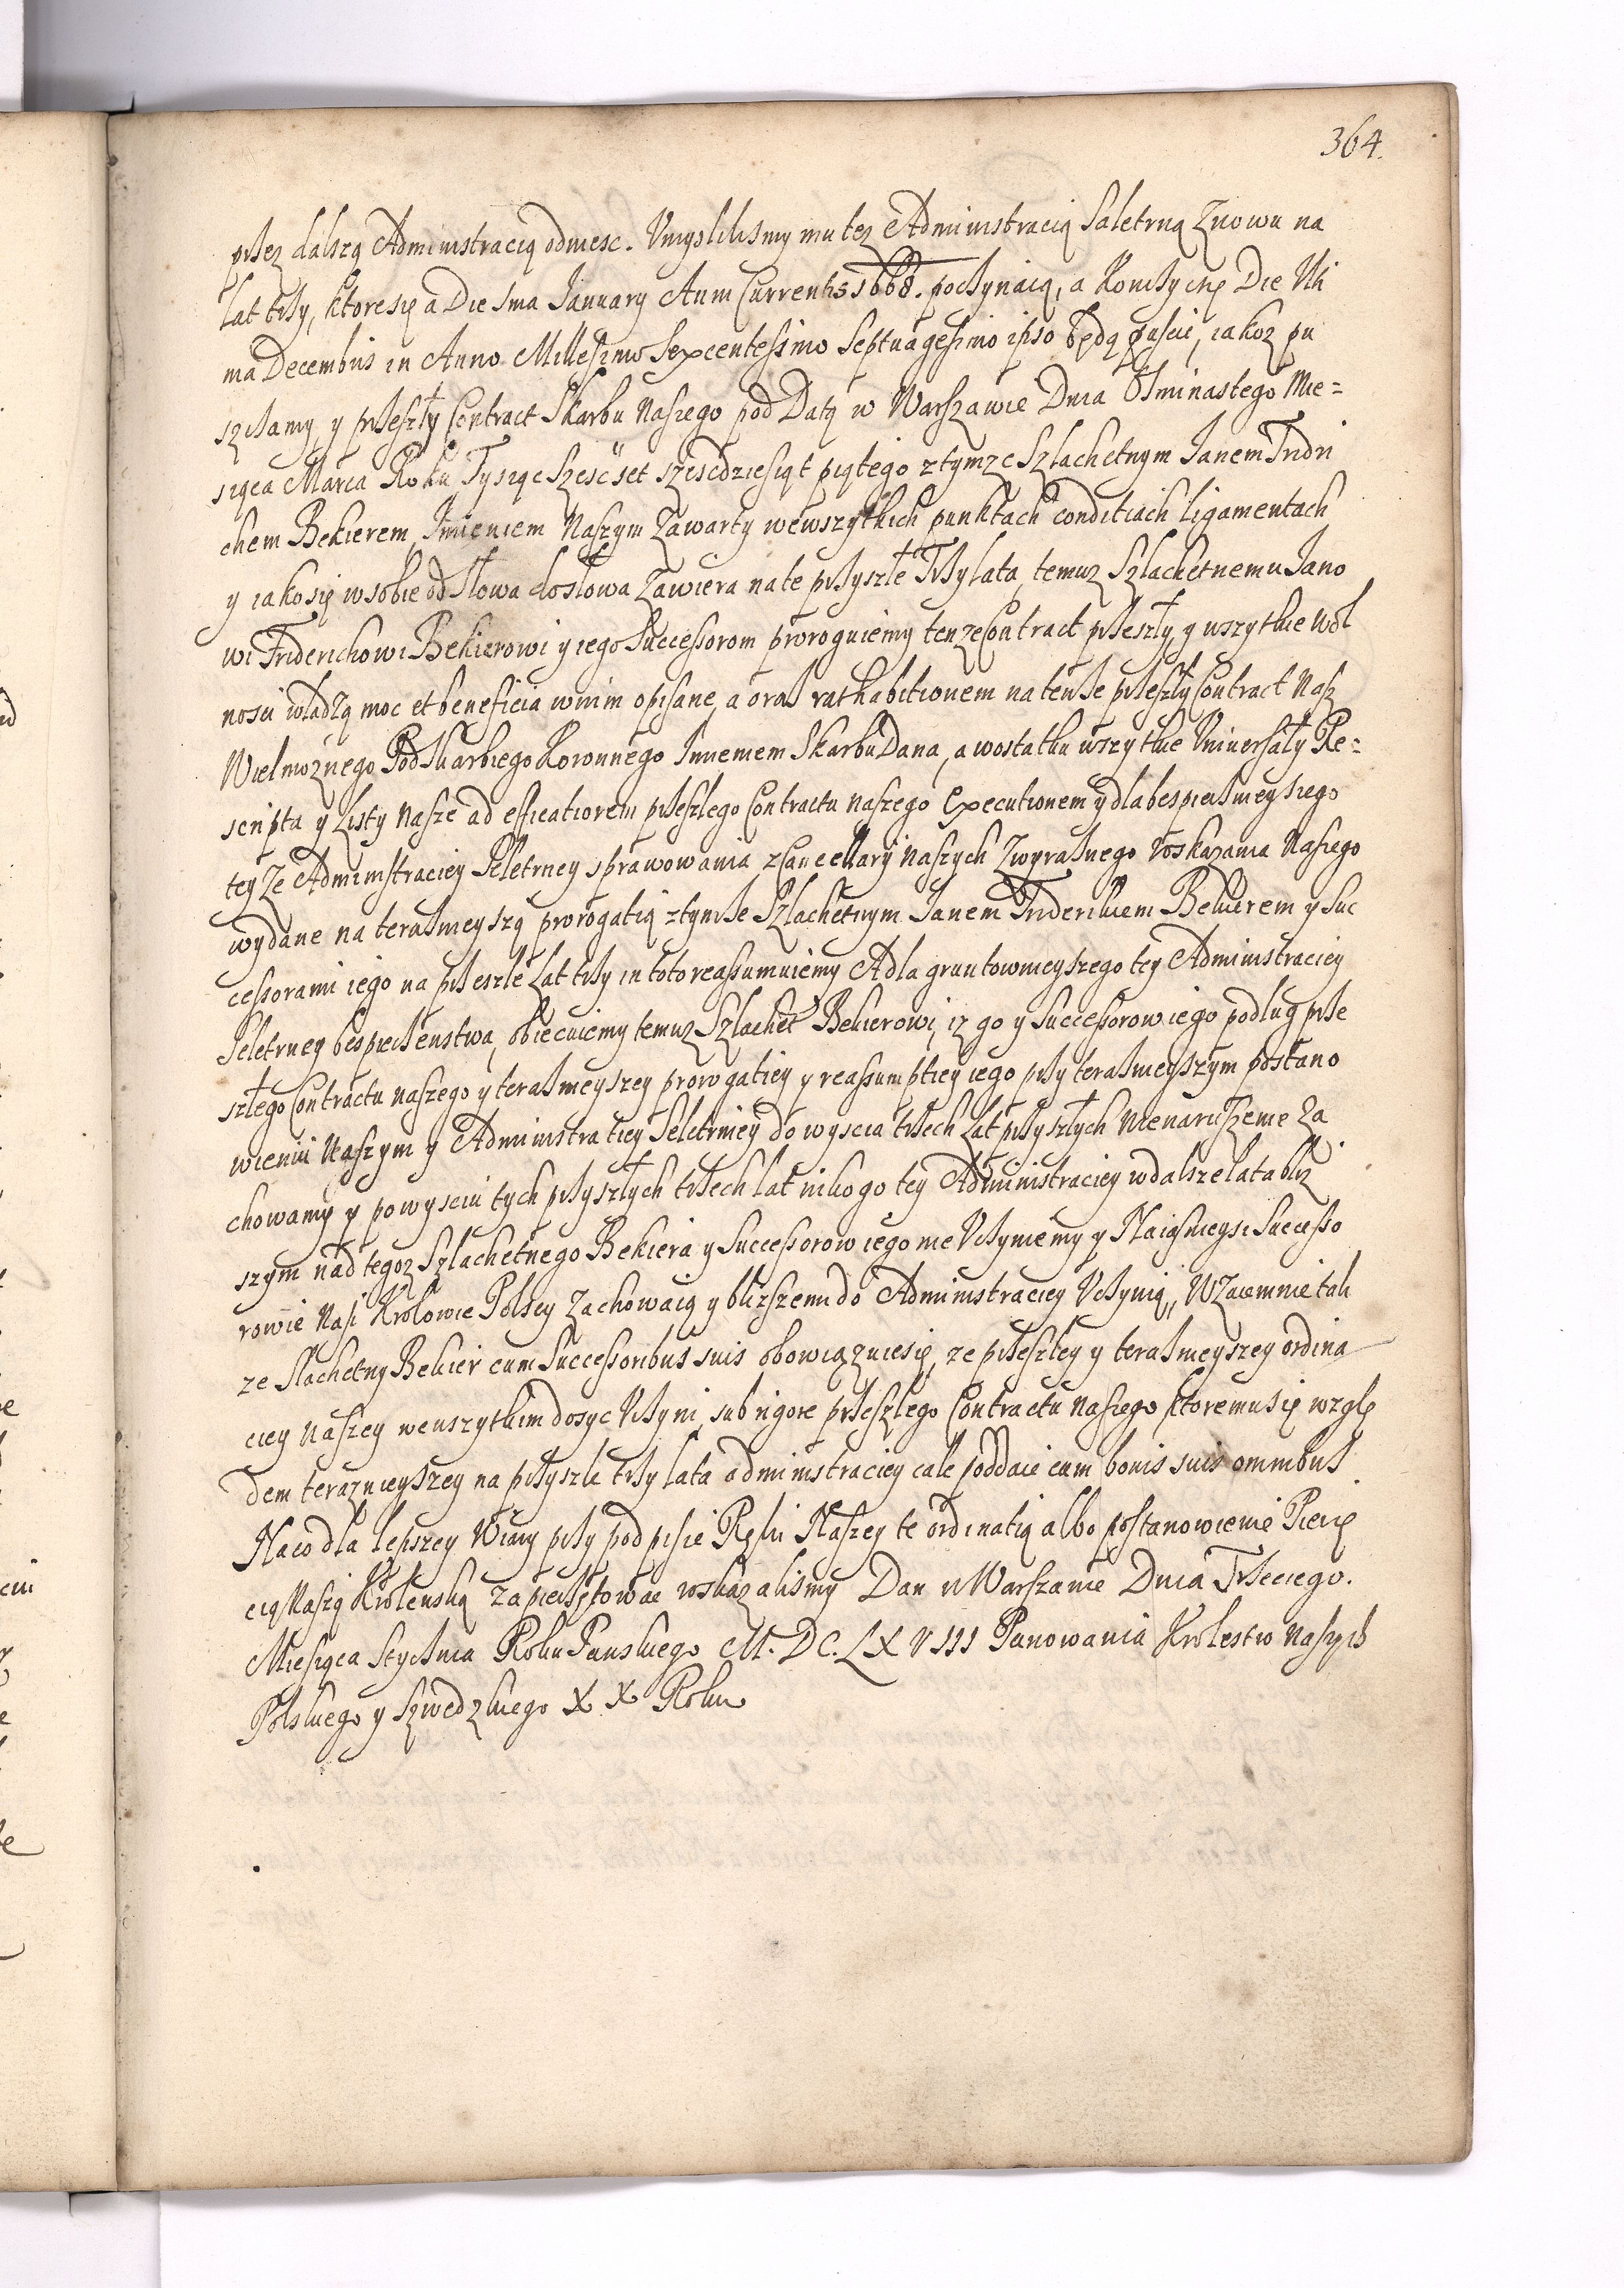 364.
przez dalszą Administracią odniesc. Umyslilismy mu tez Administracią Saletrną Znowu na
lat trzy, ktore się a Die 1ma January Anni Currentis 1668. poczynaią, a Konczyc się Die Ulti
ma Decembris in Anno Millesimo Sexcentessimo Septuagesimo ipso będą puscic, iakoz pu
szczamy, y przeszły Contract Skarbu Naszego pod Datą w Warszawie Dnia Osminastego Mie=
siąca Marca Roku Tysiąc Szescset szescdziesiąt piątego z tymze Szlachetnym Janem Fridri
chem Bekierem, Imieniem Naszym Zawarty we wszytkich punktach conditiach ligamentach
y iako się w sobie od słowa do słowa Zawiera na te przyszłe Trzy lata, temuz Szlachetnemu Jano
wi Friderichowi Bekierowi y iego Successorom proroguiemy tenze Contract przeszły, y wszytkie wol
nosci władzą moc et beneficia w nim opisane, a oraz rathabitionem na tenze przeszły Contract Nasz
Wielmoznego Podskarbiego Koronnego Imieniem Skarbu Dana, a wostatku wszytkie Uniwersały Re=
scripta y Listy Nasze ad efficatiorem przeszłego Contractu naszego Executionem y dla bespiecznieyszego
tey Ze Administraciey Seletrney sprawowania z Cancellary Naszych Zwyraznego roskazania Naszego
wydane na teraznieyszą prorogatią z tymze Szlachetnym Janem Friderikiem Bekierem y Suc
cessorami iego na przeszłe Lat trzy in toto reassumuiemy A dla gruntownieyszego tey Administraciey
Seletrney bespieczenstwa, obiecuiemy temuz Szlachet Bekierowi, iz go y Successorow iego podług prze
szłego Contractu naszego y teraznieyszey prorogatiey y reassumptiey iego przy teraznieyszym postano
wieniu Naszym y Administratiey Seletrney do wyscia trzech Lat przyszłych Nienaruszenie Za
chowamy y po wysciu tych przyszłych trzech lat nikogo tey Administraciey w dalsze lata bliz
szym nad tegoz Szlachetnego Bekiera y Successorow iego nie Uczyniemy y Naiasnieysi Successo
rowie Nasi Krolowie Polscy Zachowaią y blizszemi do Administraciey Uczynią, Wzaiemnie tak
ze Slachetny Bekier cum Successoribus suis obowiązuie się, ze przeszłey y teraznieyszey ordina
ciey Naszey we wszytkim dosyc Uczyni, sub rigore przeszłego Contractu Naszego ktoremu się wzglę
dem teraznieyszey na przyszłe trzy lata administraciey cale poddaie cum bonis suis omnibus
Na co dla lepszey Wiary przy podpisie Ręki Naszey te ordinatią albo postanowienie Pieczę
cią Naszą Krolewską zapieczętowac roskazalismy Dan w Warszawie Dnia Trzeciego.
Miesiąca Stycznia Roku Panskiego M.DC.LXVIII Panowania Krolestw Naszych
Polskiego y Szwedzkiego XX Roku